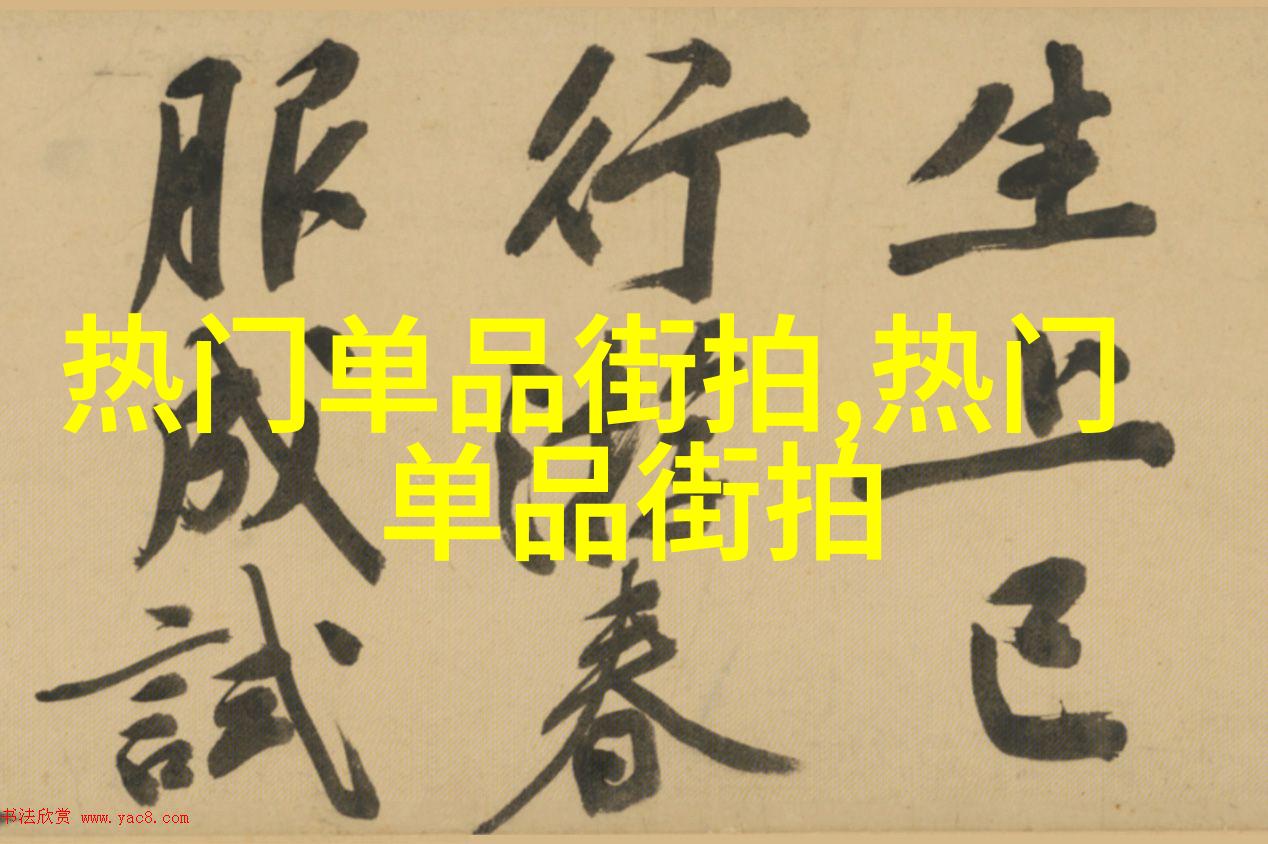 生上巳
行春
服成試
热门单品街拍,热门
单品街拍
书法欣赏 www.yac8.com